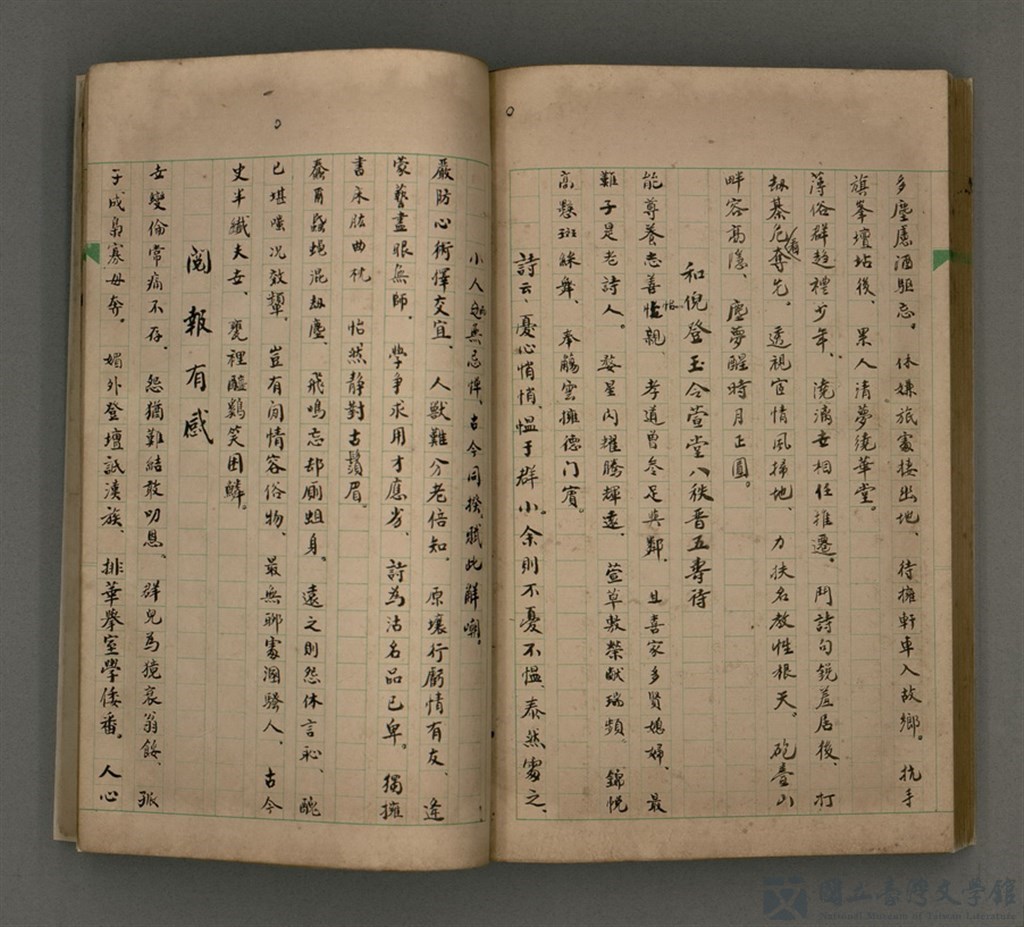 多塵慮酒驅忘。休嫌旅處接出地、待擁軒車入故鄉。抗手
旗峯壇坫後、累人清夢繞華堂。
薄俗群趨禮少年、澆漓世相任推遷。鬥詩句銳羞居後、打
劫棊危奪先。透視宦情風掃地、力扶名教性根天。砲臺山
畔容高隱、塵夢醒時月正圓。
和倪登玉令萱堂八秩晋五壽待
能尊養志善怡親、孝道曾參足與鄰、且喜家多賢媳婦、最
難子是老詩人。婺星闪耀勝輝遠、萱草敷榮献瑞頻、錦帨
高懸斑綵舞、奉觴雲擁德门賓。
詩云、憂心悄悄、愠于群小。余則不憂不愠、泰然處之、
小人無忌惮、古今同揆、賦此解嘲。
嚴防心術慎交宜、人獸難分老倍知、原壤行乖情有友、逢
蒙藝盡眼無師。學爭求用才應劣、詩為沽名品已卑。獨擁
書床肱曲枕 怡然靜對古鬚眉。
蠢爾蠅混劫塵、飛鳴忘却廁蛆身。遠之則怨休言恥、醜
已堪嗤况效顰。豈有闲情容俗物、最無聊處溷騷人、古今
史半纖夫世、甕裡醯鷄笑困鱗。
閱報有感
世變倫常痛不存、怨猶難結敢叨恩、群兒為獍哀翁餒、孤
子成梟寡母奔。媚外登壇詆漢族、排華舉室學倭番。人心
國立臺灣文學館
National Museum of Taiwan Literature